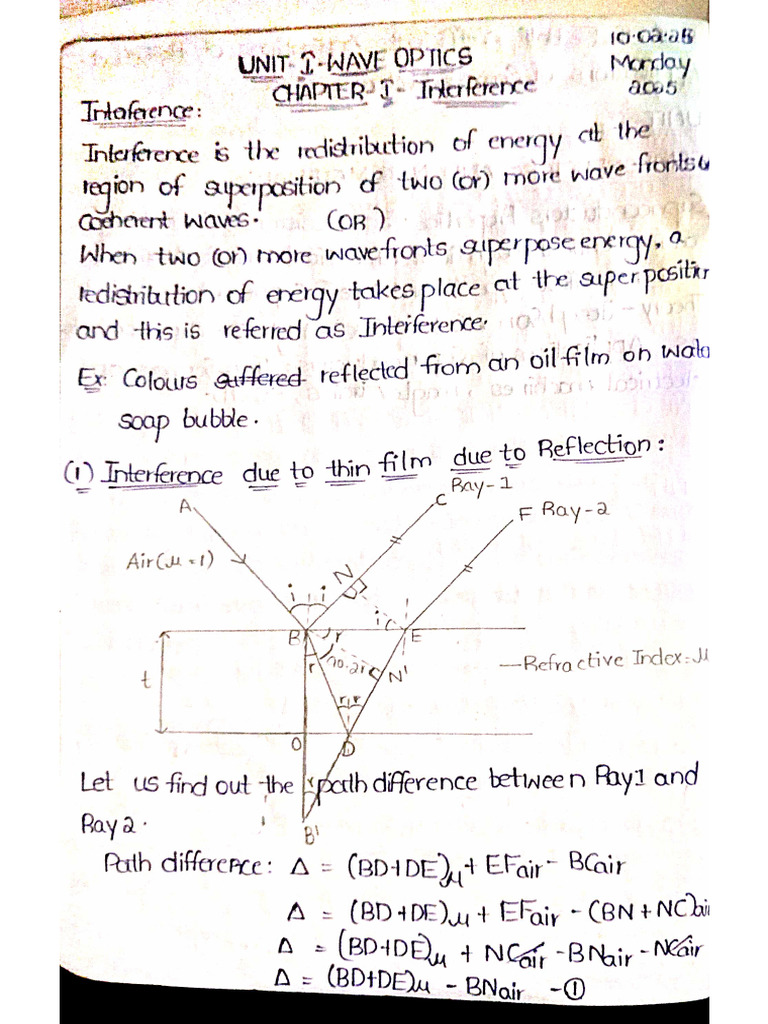 10.02.25
UNIT-I-WAVE OPTICS Monday
CHAPTER-I- Interference 2025
Intaference:
Interference is the redistribution of energy at the
region of superposition of two (or) more wave fronts
coherent waves. (OR)
When two (or) more wavefronts superpose energy, a
redistribution of energy takes place at the superposition
and this is referred as Interference.
Ex: Colours suffered reflected from an oil film on wate
soap bubble.
(1) Interference due to thin film due to Reflection:
A
C Ray-1
F Ray-2
Air(μ=1)
N
i i
i
B r E
r N'
t
r r
—Refractive Index:μ
O D
Let us find out the path difference between Ray1 and
r
Ray 2.
B'
Path difference: Δ = (BD+DE)μ + EFair - BCair
Δ = (BD+DE)μ + EFair - (BN + NC)air
Δ = (BD+DE)μ + NCair - BNair - NCair
Δ = (BD+DE)μ - BNair -①